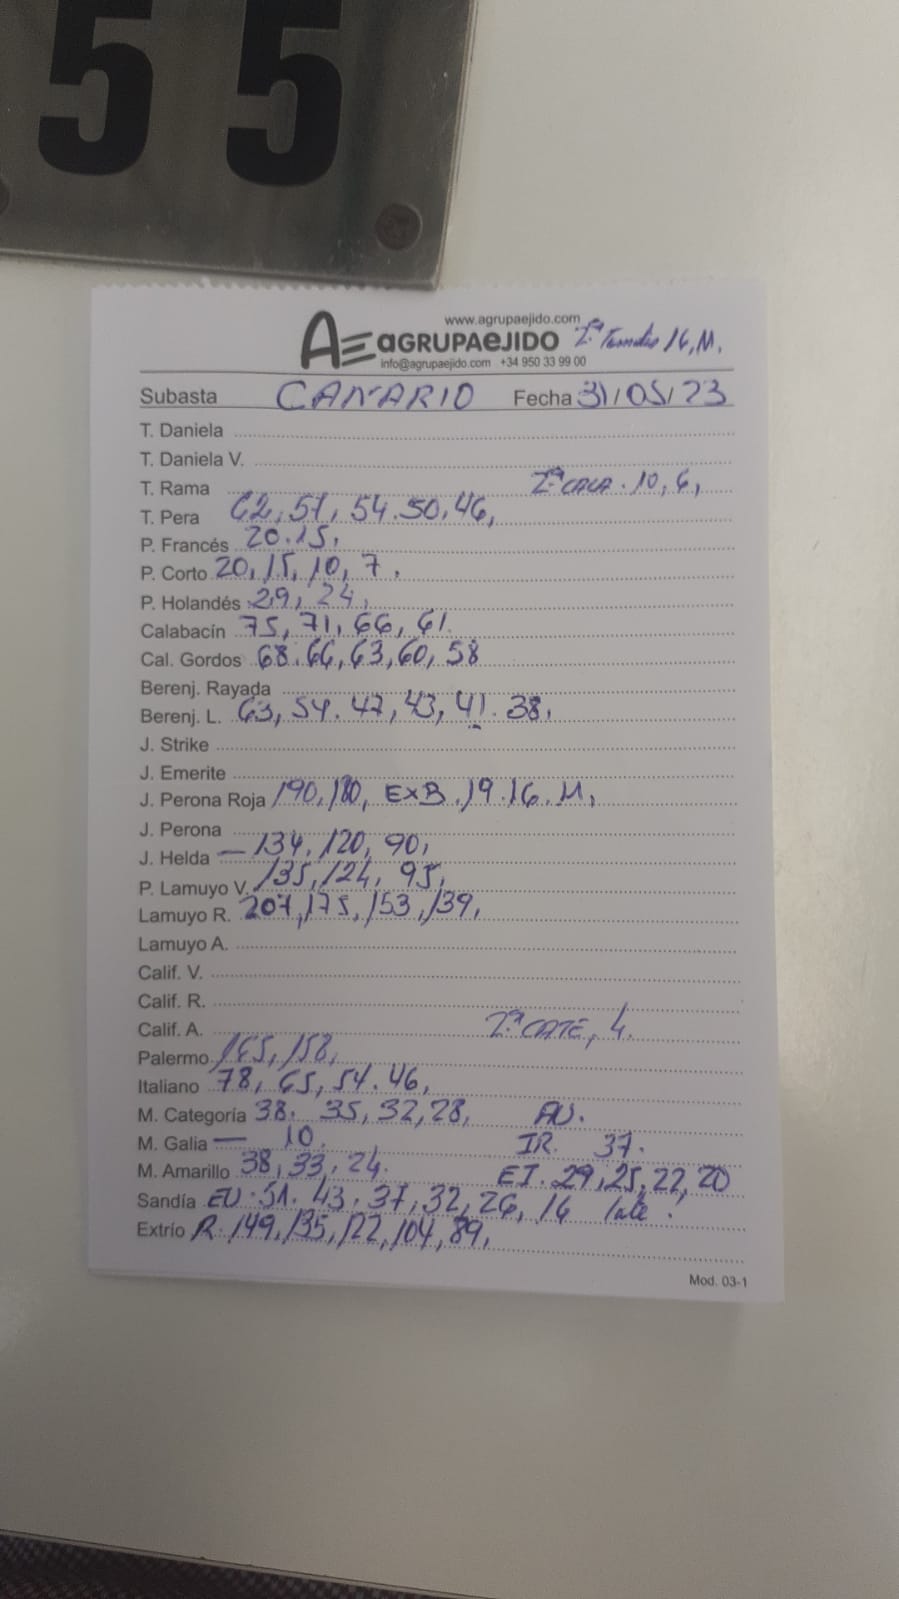 55
www.agrupaejido.com
AGRUPAEJIDO 2ª 16, M,
info@agrupaejido.com +34 950 33 99 00
Subasta CANARIO Fecha 31/05/23
T. Daniela
T. Daniela V.
T. Rama 2ª CALA. 10, 6,
T. Pera 62, 57, 54. 50, 46,
P. Francés 20. 15,
P. Corto 20, 15, 10, 7.
P. Holandés 29, 24,
Calabacín 75, 71, 66, 61.
Cal. Gordos 68. 66, 63, 60, 58
Berenj. Rayada
Berenj. L. 63, 54. 47, 43, 41. 38,
J. Strike
J. Emerite
J. Perona Roja 190, 180, EXB. 19. 16. M,
J. Perona
J. Helda — 134, 120, 90,
P. Lamuyo V. 135, 124, 95,
Lamuyo R. 207, 175, 153, 139,
Lamuyo A.
Calif. V.
Calif. R.
Calif. A. 2ª CATE, 4.
Palermo 165, 158,
Italiano 78, 65, 54. 46,
M. Categoría 38. 35, 32, 28, AU.
M. Galia — 10. IR. 37.
M. Amarillo 38, 33, 24. EI. 29, 25, 22, 20
Sandía EU. 51. 43. 37, 32, 26, 16
Extrío R. 149, 135, 122, 104, 89,
Mod. 03-1